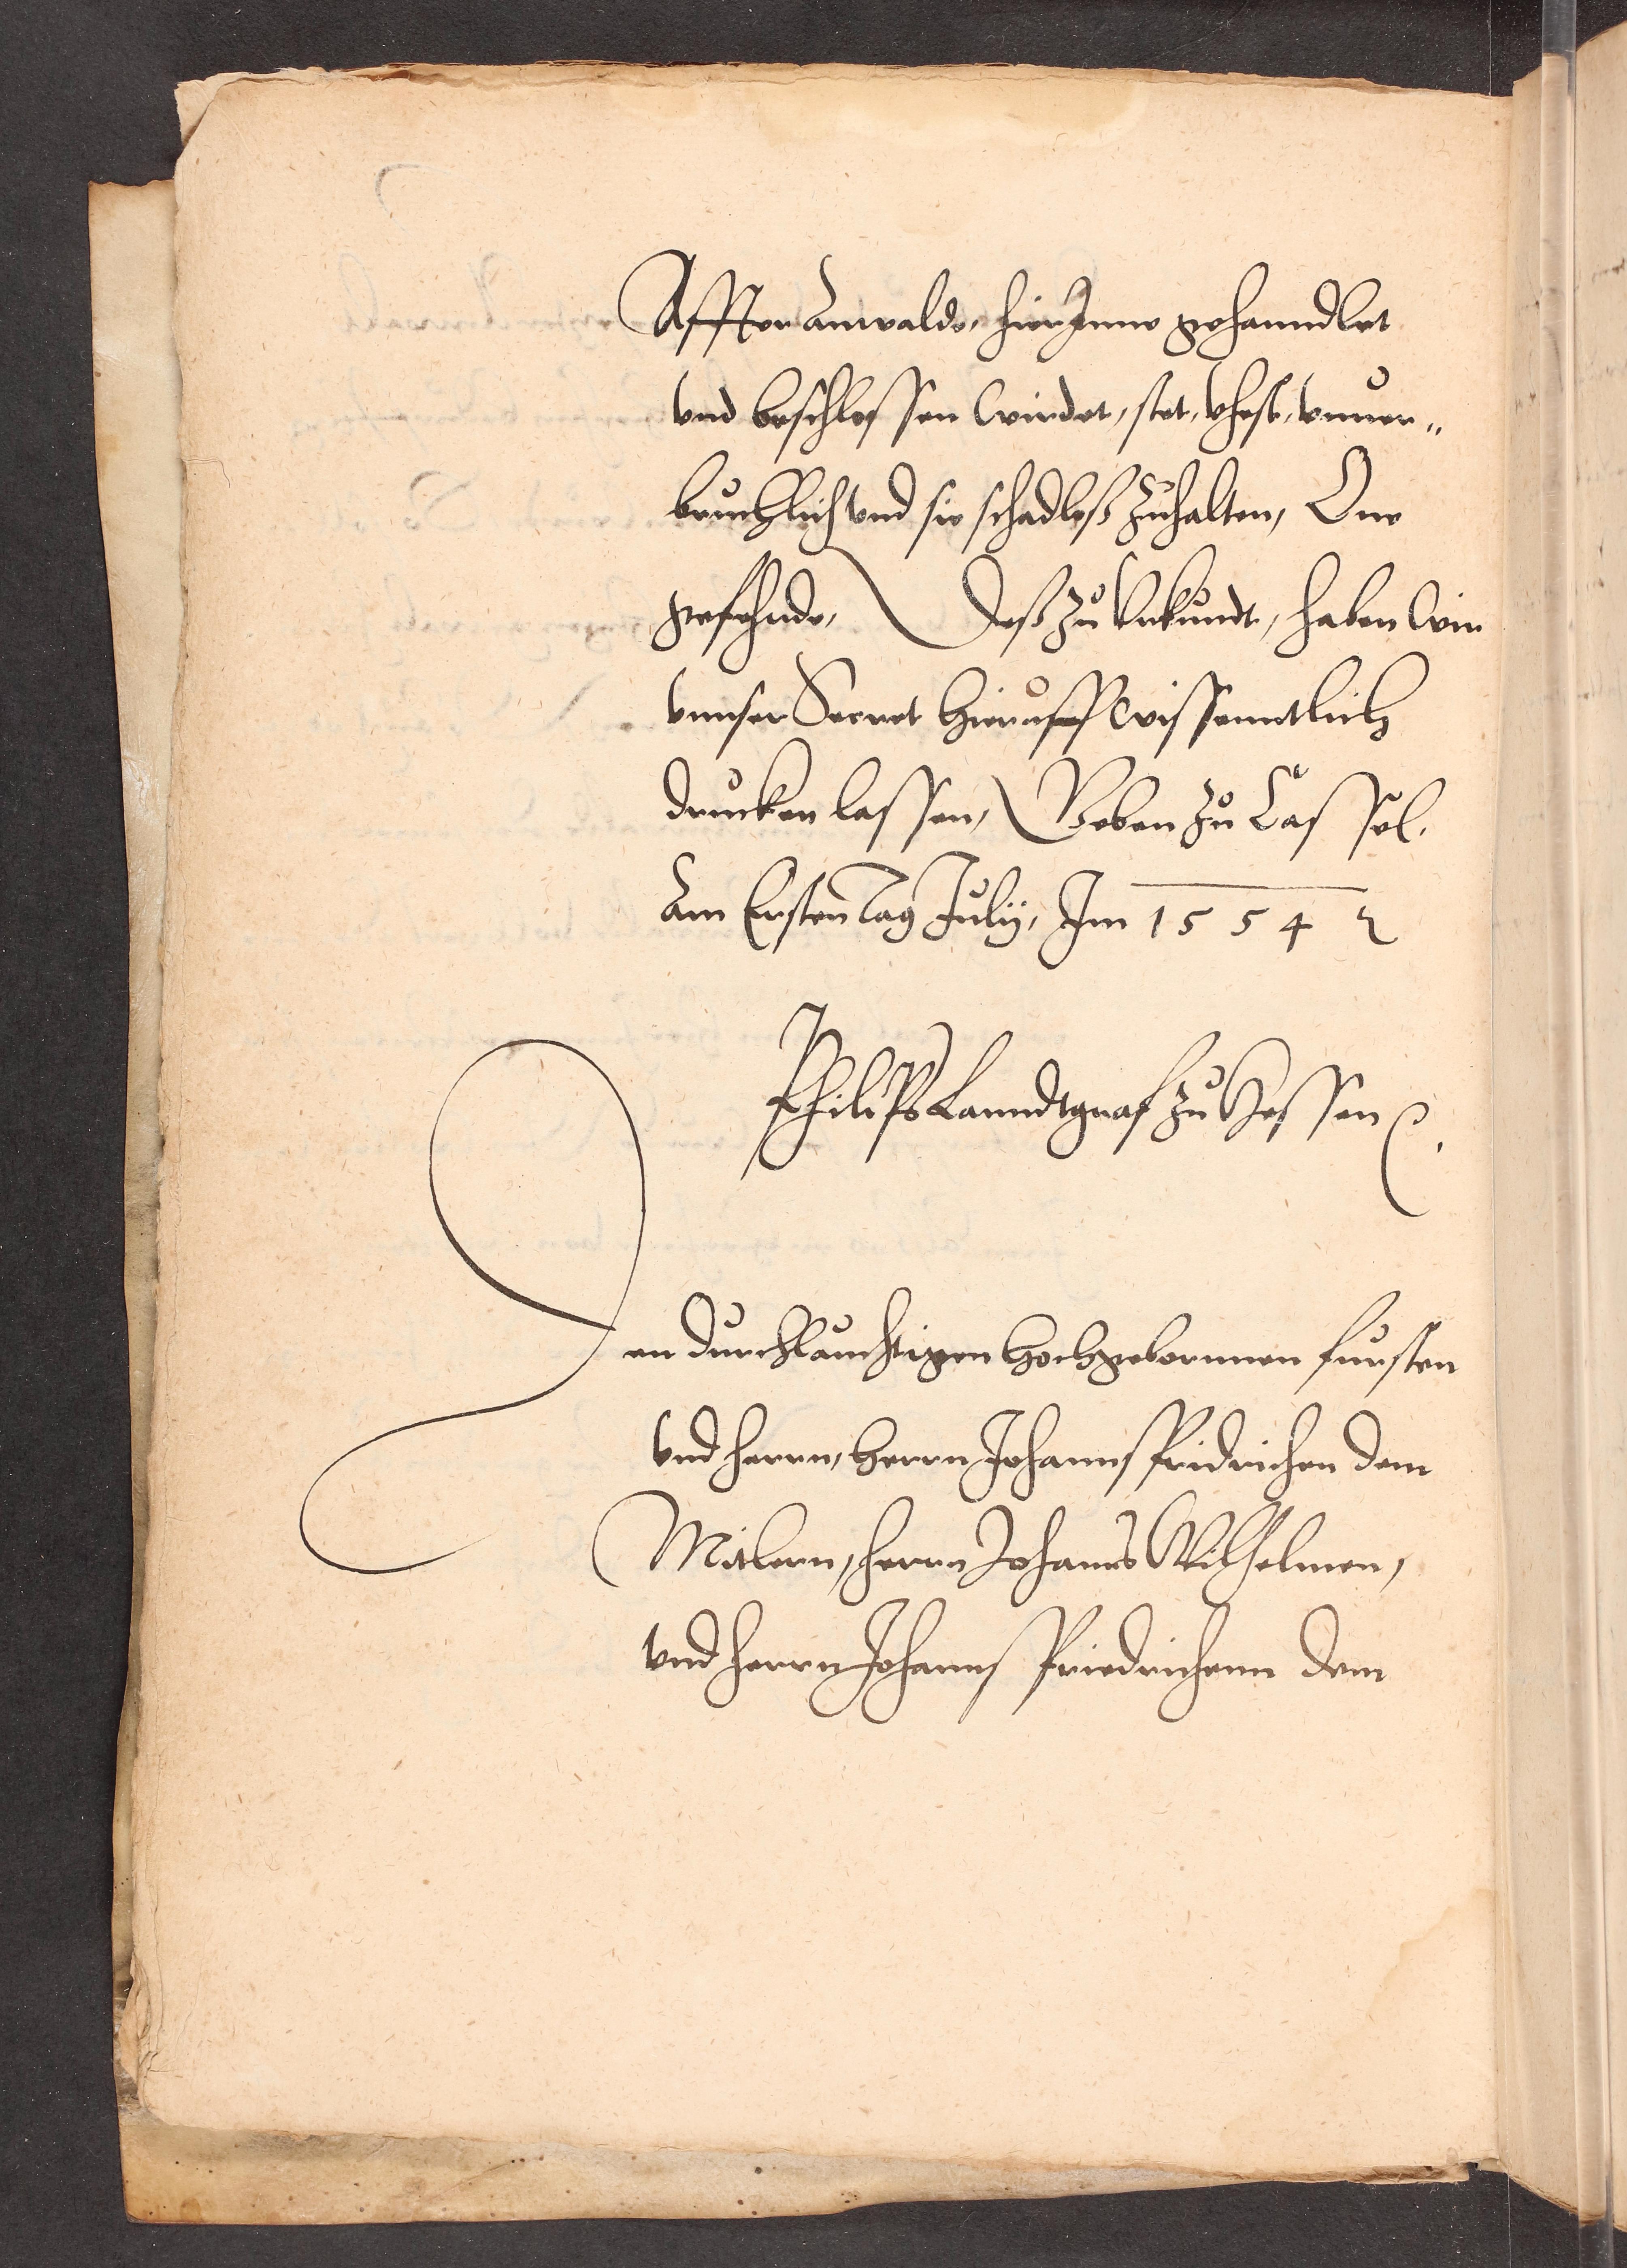 Affter Anwalde, hierInne gehanndlet
vnd beschlossen wirdet, stet, vhest, vnuer„
bruchlich vnd sie schadloß zuhalten, One
geferhde, Deß zu Vrkundt, haben wir
vnnser Secret hieruff wissenntlich
drucken lassen, Geben zu Cassel,
Am Ersten tag Julij, Im 1554 ꝛ
Philips Lanndtgraf zu Hessen ꝛc.
Den durchlauchtigen hochgebornnen fursten
vnd herrn, herrn Johanns fridrichen dem
Mitlern, herrn Johanns Wilhelmen,
vnd herrn Johanns Friedrichenn dem